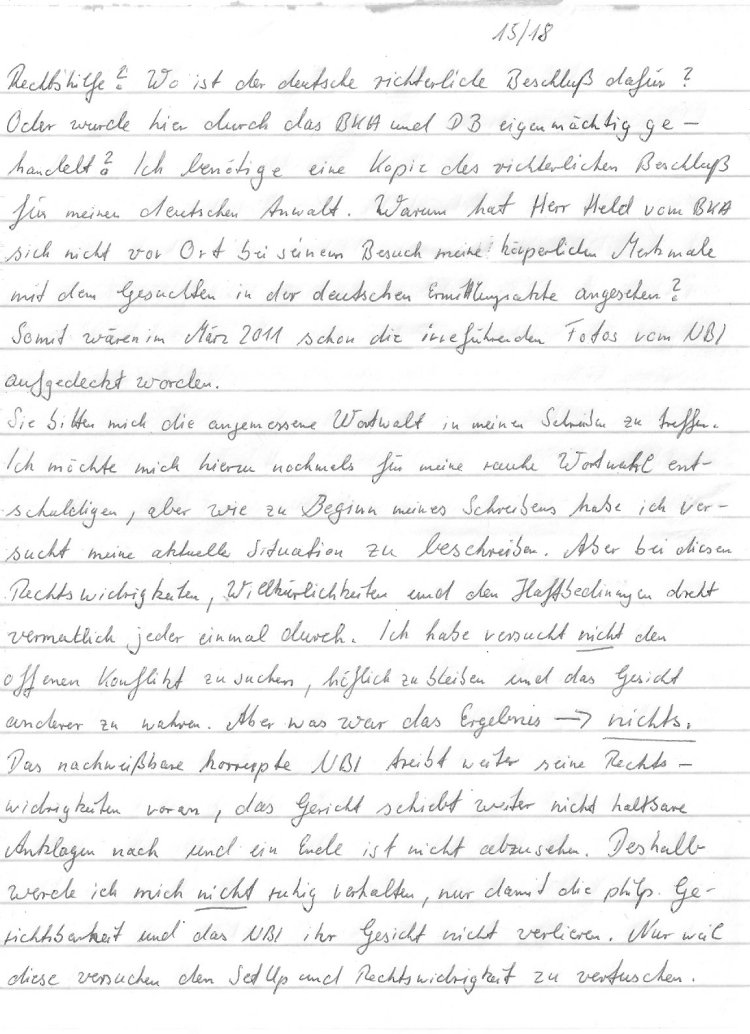 15/18
Rechtshilfe? Wo ist der deutsche richterliche Beschluß dafür?
Oder wurde hier durch das BKA und DB eigenmächtig ge-
handelt? Ich benötige eine Kopie des richterlichen Beschluß
für meinen deutschen Anwalt. Warum hat Herr Held vom BKA
sich nicht vor Ort bei seinem Besuch meine körperlichen Merkmale
mit dem Gesuchten in der deutschen Ermittlungsakte angesehen?
Somit wären im März 2011 schon die irreführenden Fotos vom NBI
aufgedeckt worden.
Sie bitten mich die angemessene Wortwalt in meinen Schreiben zu treffen.
Ich möchte mich hierzu nochmals für meine rauhe Wortwahl ent-
schuldigen, aber wie zu Beginn meines Schreibens habe ich ver-
sucht meine aktuelle Situation zu beschreiben. Aber bei diesen
Rechtswidrigkeiten, Willkürlichkeiten und den Haftbedinungen dreht
vermutlich jeder einmal durch. Ich habe versucht nicht den
offenen Konflikt zu suchen, höflich zu bleiben und das Gesicht
anderer zu wahren. Aber was war das Ergebnis → nichts.
Das nachweißbare korrupte NBI treibt weiter seine Rechts-
widrigkeiten voran, das Gericht schiebt weiter nicht haltbare
Anklagen nach und ein Ende ist nicht abzusehen. Deshalb
werde ich mich nicht ruhig verhalten, nur damit die philp. Ge-
richtsbarkeit und das NBI ihr Gesicht nicht verlieren. Nur weil
diese versuchen den SetUp und Rechtswidrigkeit zu vertuschen.